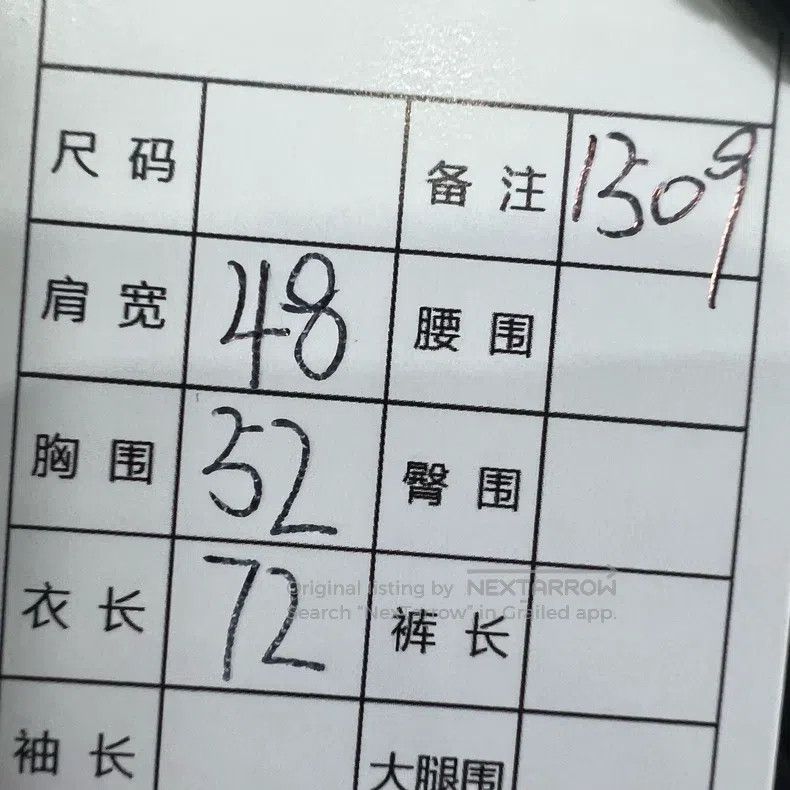 尺码 备注 1309
肩宽 48 腰围
胸围 52 臀围
衣长 72 裤长
Original listing by NEXTARROW
Search "NextArrow" in Grailed app.
袖长 大腿围